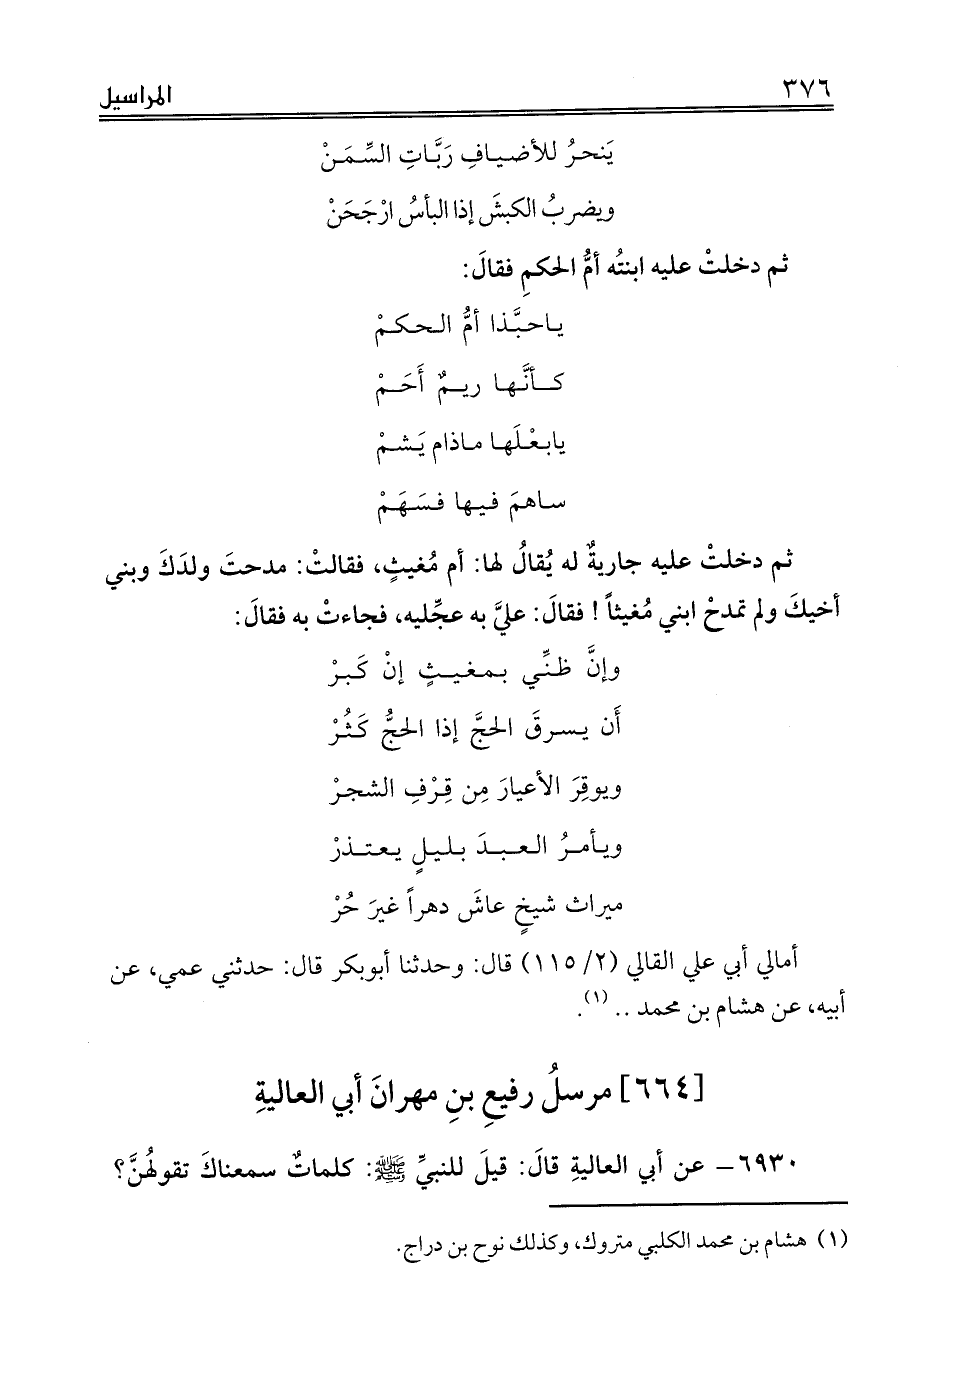 ٣٧٦
المراسيل
يَنحرُ للأضيافِ رَبَّاتِ السِّمَنْ
ويضربُ الكبشَ إذا البأسُ ارْجَحَنْ
ثم دخلتْ عليه ابنتُه أمُّ الحكمِ فقالَ:
ياحبَّذا أمُّ الحكمْ
كأنَّها ريمٌ أَحَمْ
يابعْلَها ماذام يَشمْ
ساهمَ فيها فسَهَمْ
ثم دخلتْ عليه جاريةٌ له يُقالُ لها: أم مُغيثٍ، فقالتْ: مدحتَ ولدَكَ وبني
أخيكَ ولم تمدحْ ابني مُغيثاً! فقالَ: عليَّ به عجِّليه، فجاءتْ به فقالَ:
وإنَّ ظنِّي بمغيثٍ إنْ كَبرْ
أَن يسرقَ الحجَّ إذا الحجُّ كَثُرْ
ويوقِرَ الأعيارَ مِن قِرْفِ الشجرْ
ويأمرُ العبدَ بليلٍ يعتذرْ
ميراث شيخٍ عاشَ دهراً غيرَ حُرْ
أمالي أبي علي القالي (٢/ ١١٥) قال: وحدثنا أبوبكر قال: حدثني عمي، عن
أبيه، عن هشام بن محمد .. (١).
[٦٦٤] مرسلُ رفيعِ بنِ مهرانَ أبي العاليةِ
٦٩٣٠- عن أبي العاليةِ قالَ: قيلَ للنبيِّ ﷺ: كلماتٌ سمعناكَ تقولُهنَّ؟
(١) هشام بن محمد الكلبي متروك، وكذلك نوح بن دراج.